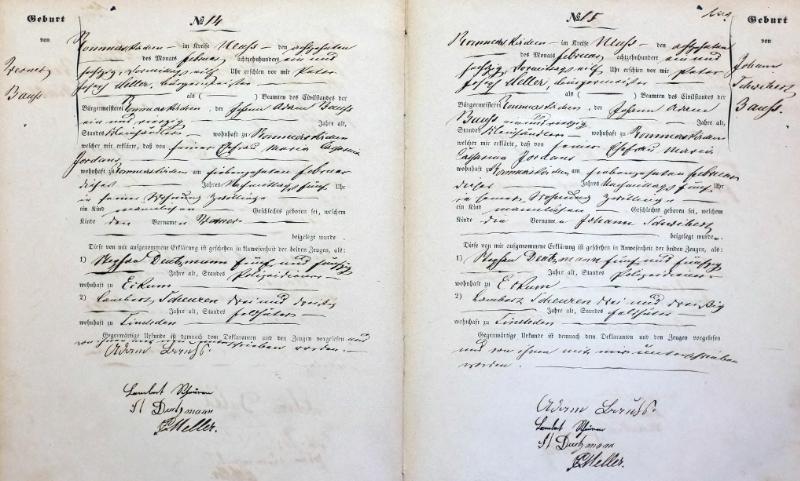 Geburt
von
Werner
Bauss
№ 14
Rommerskirchen im Kreise Neuß den achtzehnten
des Monats februar achtzehnhundert ein und
sechzig, Vormittags elf Uhr erschien vor mir Peter
Joseph Meller, bürgermeister
als ( ) Beamten des Civilstandes der
Bürgermeisterei Rommerskirchen, der Johann Adam Bauss
ein und vierzig Jahre alt,
Standes Kleinhändler wohnhaft zu Rommerskirchen
welcher mir erklärte, daß von seiner Ehefrau Maria
Jordans
wohnhaft zu Rommerskirchen am siebenzehnten februar
dieses Jahres Nachmittags fünf Uhr
in seiner Wohnung Zwillinge
ein Kind männlichen Geschlechts geboren sei, welchem
Kinde die Vornamen Werner
beigelegt wurde
Diese von mir aufgenommene Erklärung ist geschehen in Anwesenheit der beiden Zeugen, als:
1) Stephan Deutzmann fünf und fünfzig
Jahre alt, Standes Polizeidiener
wohnhaft zu Eckum
2) Lambert Scheuren drei und dreißig
Jahre alt, Standes
wohnhaft zu
Gegenwärtige Urkunde ist demnach dem Deklaranten und den Zeugen vorgelesen und
von ihnen mit mir unterschrieben worden.
Adam Bauss.
Lambert Scheuren
St Deutzmann
P Meller.
№ 15
Geburt
von
Johann
Bauss.
Rommerskirchen im Kreise Neuß den achtzehnten
des Monats februar achtzehnhundert ein und
sechzig, Vormittags elf Uhr erschien vor mir Peter
Joseph Meller, bürgermeister
als ( ) Beamten des Civilstandes der
Bürgermeisterei Rommerskirchen, der Johann Adam
Bauss ein und vierzig Jahre alt,
Standes Kleinhändler wohnhaft zu Rommerskirchen
welcher mir erklärte, daß von seiner Ehefrau Maria
Jordans
wohnhaft zu Rommerskirchen am siebenzehnten februar
dieses Jahres Nachmittags fünf Uhr
in seiner Wohnung Zwillinge
ein Kind männlichen Geschlechts geboren sei, welchem
Kinde die Vornamen Johann
beigelegt wurde
Diese von mir aufgenommene Erklärung ist geschehen in Anwesenheit der beiden Zeugen, als:
1) Stephan Deutzmann fünf und fünfzig
Jahre alt, Standes Polizeidiener
wohnhaft zu Eckum
2) Lambert Scheuren drei und dreißig
Jahre alt, Standes
wohnhaft zu
Gegenwärtige Urkunde ist demnach dem Deklaranten und den Zeugen vorgelesen
und von ihnen mit mir unterschrieben
worden.
Adam Bauss.
Lambert Scheuren
St Deutzmann
P Meller.